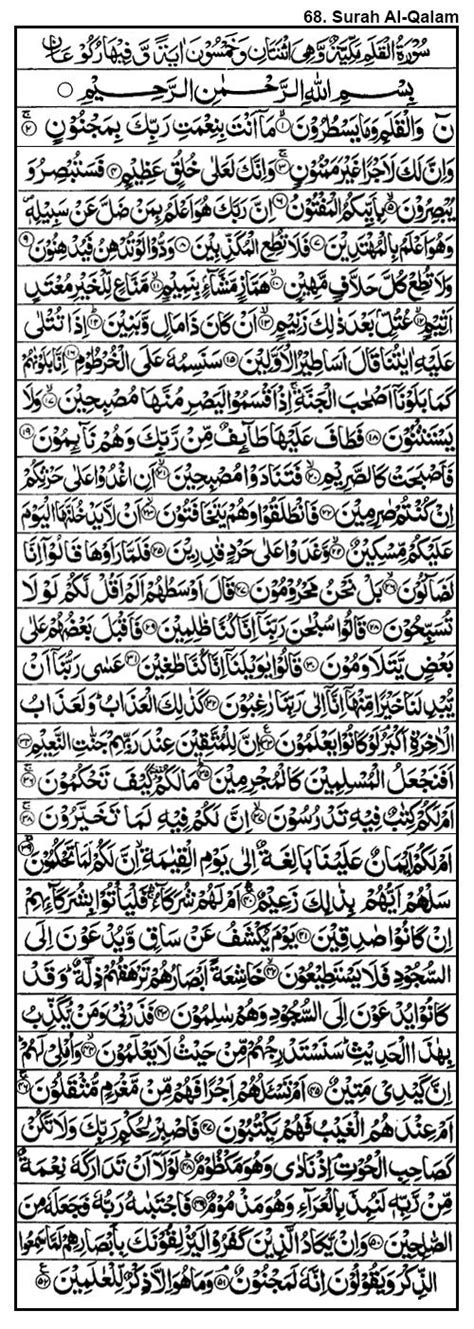 68. Surah Al-Qalam
سُوْرَةُ الْقَلَمِ مَكِّيَّةٌ وَّهِىَ اثْنَتَانِ وَخَمْسُوْنَ اٰيَةً وَّ فِيْهَا رُكُوْعَانِ
بِسْمِ اللّٰهِ الرَّحْمٰنِ الرَّحِيْمِ
نٓ وَالْقَلَمِ وَمَا يَسْطُرُوْنَ ۙ﴿۱﴾ مَاۤ اَنْتَ بِنِعْمَةِ رَبِّكَ بِمَجْنُوْنٍ ۚ﴿۲﴾
وَاِنَّ لَكَ لَاَجْرًا غَيْرَ مَمْنُوْنٍ ۚ﴿۳﴾ وَاِنَّكَ لَعَلٰى خُلُقٍ عَظِيْمٍ ﴿۴﴾ فَسَتُبْصِرُ وَ
يُبْصِرُوْنَ ۙ﴿۵﴾ بِاَيِّٮكُمُ الْمَفْتُوْنُ ﴿۶﴾ اِنَّ رَبَّكَ هُوَ اَعْلَمُ بِمَنْ ضَلَّ عَنْ سَبِيْلِهٖ
وَهُوَ اَعْلَمُ بِالْمُهْتَدِيْنَ ﴿۷﴾ فَلَا تُطِعِ الْمُكَذِّبِيْنَ ﴿۸﴾ وَدُّوْا لَوْ تُدْهِنُ فَيُدْهِنُوْنَ ﴿۹﴾
وَلَا تُطِعْ كُلَّ حَلَّافٍ مَّهِيْنٍ ۙ﴿۱۰﴾ هَمَّازٍ مَّشَّآءٍۢ بِنَمِيْمٍ ۙ﴿۱۱﴾ مَنَّاعٍ لِّلْخَيْرِ مُعْتَدٍ
اَثِيْمٍ ۙ﴿۱۲﴾ عُتُلٍّۢ بَعْدَ ذٰلِكَ زَنِيْمٍ ۙ﴿۱۳﴾ اَنْ كَانَ ذَا مَالٍ وَّبَنِيْنَ ؕ﴿۱۴﴾ اِذَا تُتْلٰى
عَلَيْهِ اٰيٰتُنَا قَالَ اَسَاطِيْرُ الْاَوَّلِيْنَ ﴿۱۵﴾ سَنَسِمُهٗ عَلَى الْخُرْطُوْمِ ﴿۱۶﴾ اِنَّا بَلَوْنٰهُمْ
كَمَا بَلَوْنَاۤ اَصْحٰبَ الْجَنَّةِ ۚ اِذْ اَقْسَمُوْا لَيَصْرِمُنَّهَا مُصْبِحِيْنَ ۙ﴿۱۷﴾ وَلَا
يَسْتَثْنُوْنَ ﴿۱۸﴾ فَطَافَ عَلَيْهَا طَآٮِٕفٌ مِّنْ رَّبِّكَ وَهُمْ نَآٮِٕمُوْنَ ﴿۱۹﴾
فَاَصْبَحَتْ كَالصَّرِيْمِ ۙ﴿۲۰﴾ فَتَنَادَوْا مُصْبِحِيْنَ ۙ﴿۲۱﴾ اَنِ اغْدُوْا عَلٰى حَرْثِكُمْ
اِنْ كُنْتُمْ صٰرِمِيْنَ ﴿۲۲﴾ فَانْطَلَقُوْا وَهُمْ يَتَخَافَتُوْنَ ۙ﴿۲۳﴾ اَنْ لَّا يَدْخُلَنَّهَا الْيَوْمَ
عَلَيْكُمْ مِّسْكِيْنٌ ۙ﴿۲۴﴾ وَّغَدَوْا عَلٰى حَرْدٍ قٰدِرِيْنَ ﴿۲۵﴾ فَلَمَّا رَاَوْهَا قَالُوْۤا اِنَّا
لَضَآلُّوْنَ ۙ﴿۲۶﴾ بَلْ نَحْنُ مَحْرُوْمُوْنَ ﴿۲۷﴾ قَالَ اَوْسَطُهُمْ اَلَمْ اَقُلْ لَّكُمْ لَوْلَا
تُسَبِّحُوْنَ ﴿۲۸﴾ قَالُوْا سُبْحٰنَ رَبِّنَاۤ اِنَّا كُنَّا ظٰلِمِيْنَ ﴿۲۹﴾ فَاَقْبَلَ بَعْضُهُمْ عَلٰى
بَعْضٍ يَّتَلَاوَمُوْنَ ﴿۳۰﴾ قَالُوْا يٰوَيْلَنَاۤ اِنَّا كُنَّا طٰغِيْنَ ﴿۳۱﴾ عَسٰى رَبُّنَاۤ اَنْ
يُّبْدِلَنَا خَيْرًا مِّنْهَاۤ اِنَّاۤ اِلٰى رَبِّنَا رٰغِبُوْنَ ﴿۳۲﴾ كَذٰلِكَ الْعَذَابُ ؕ وَلَعَذَابُ
الْاٰخِرَةِ اَكْبَرُ ۘ لَوْ كَانُوْا يَعْلَمُوْنَ ﴿۳۳﴾ اِنَّ لِلْمُتَّقِيْنَ عِنْدَ رَبِّهِمْ جَنّٰتِ النَّعِيْمِ ﴿۳۴﴾
اَفَنَجْعَلُ الْمُسْلِمِيْنَ كَالْمُجْرِمِيْنَ ؕ﴿۳۵﴾ مَا لَكُمْ كَيْفَ تَحْكُمُوْنَ ۚ﴿۳۶﴾
اَمْ لَكُمْ كِتٰبٌ فِيْهِ تَدْرُسُوْنَ ۙ﴿۳۷﴾ اِنَّ لَكُمْ فِيْهِ لَمَا تَخَيَّرُوْنَ ۚ﴿۳۸﴾
اَمْ لَكُمْ اَيْمَانٌ عَلَيْنَا بَالِغَةٌ اِلٰى يَوْمِ الْقِيٰمَةِ ۙ اِنَّ لَكُمْ لَمَا تَحْكُمُوْنَ ۚ﴿۳۹﴾
سَلْهُمْ اَيُّهُمْ بِذٰلِكَ زَعِيْمٌ ۚۛ﴿۴۰﴾ اَمْ لَهُمْ شُرَكَآءُ ۚۛ فَلْيَاْتُوْا بِشُرَكَآٮِٕهِمْ
اِنْ كَانُوْا صٰدِقِيْنَ ﴿۴۱﴾ يَوْمَ يُكْشَفُ عَنْ سَاقٍ وَّيُدْعَوْنَ اِلَى
السُّجُوْدِ فَلَا يَسْتَطِيْعُوْنَ ۙ﴿۴۲﴾ خَاشِعَةً اَبْصَارُهُمْ تَرْهَقُهُمْ ذِلَّةٌ ؕ وَقَدْ
كَانُوْا يُدْعَوْنَ اِلَى السُّجُوْدِ وَهُمْ سٰلِمُوْنَ ﴿۴۳﴾ فَذَرْنِىْ وَمَنْ يُّكَذِّبُ
بِهٰذَا الْحَدِيْثِ ؕ سَنَسْتَدْرِجُهُمْ مِّنْ حَيْثُ لَا يَعْلَمُوْنَ ۙ﴿۴۴﴾ وَاُمْلِىْ لَهُمْ ؕ
اِنَّ كَيْدِىْ مَتِيْنٌ ﴿۴۵﴾ اَمْ تَسْــَٔلُهُمْ اَجْرًا فَهُمْ مِّنْ مَّغْرَمٍ مُّثْقَلُوْنَ ۚ﴿۴۶﴾
اَمْ عِنْدَهُمُ الْغَيْبُ فَهُمْ يَكْتُبُوْنَ ﴿۴۷﴾ فَاصْبِرْ لِحُكْمِ رَبِّكَ وَلَا تَكُنْ
كَصَاحِبِ الْحُوْتِ ۘ اِذْ نَادٰى وَهُوَ مَكْظُوْمٌ ؕ﴿۴۸﴾ لَوْلَاۤ اَنْ تَدٰرَكَهٗ نِعْمَةٌ
مِّنْ رَّبِّهٖ لَنُبِذَ بِالْعَرَآءِ وَهُوَ مَذْمُوْمٌ ﴿۴۹﴾ فَاجْتَبٰٮهُ رَبُّهٗ فَجَعَلَهٗ مِنَ
الصّٰلِحِيْنَ ﴿۵۰﴾ وَاِنْ يَّكَادُ الَّذِيْنَ كَفَرُوْا لَيُزْلِقُوْنَكَ بِاَبْصَارِهِمْ لَمَّا سَمِعُوا
الذِّكْرَ وَيَقُوْلُوْنَ اِنَّهٗ لَمَجْنُوْنٌ ۘ﴿۵۱﴾ وَمَا هُوَ اِلَّا ذِكْرٌ لِّلْعٰلَمِيْنَ ﴿۵۲﴾